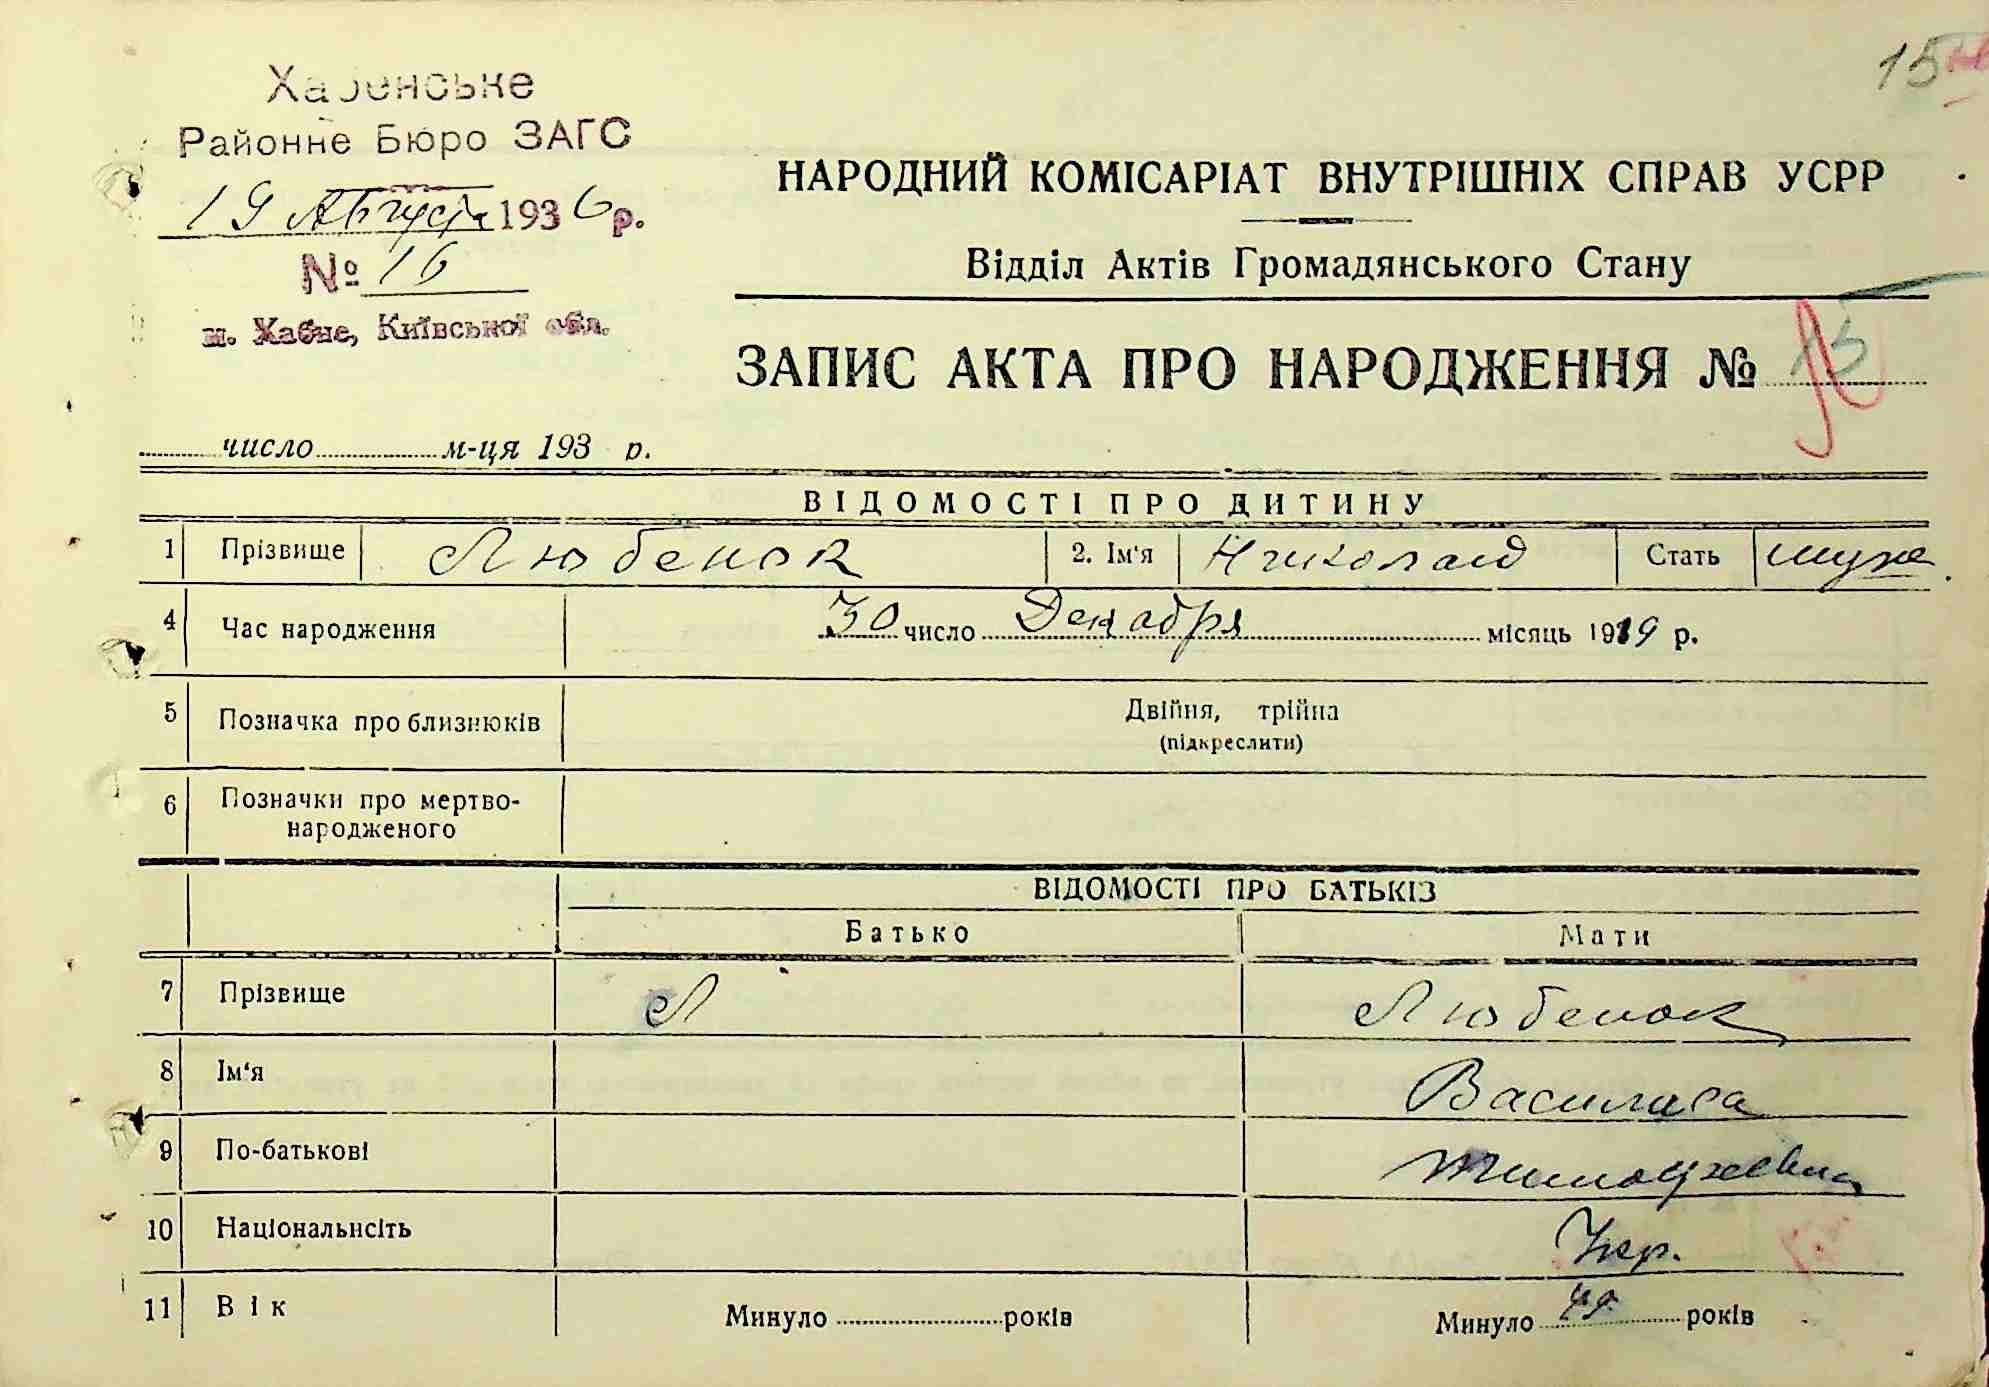 15
Хабенське
Районне Бюро ЗАГС
19 Августа 1936 р.
№ 16
м. Хабне, Київської обл.
НАРОДНИЙ КОМІСАРІАТ ВНУТРІШНІХ СПРАВ УСРР
Відділ Актів Громадянського Стану
ЗАПИС АКТА ПРО НАРОДЖЕННЯ № 15
число м-ця 193 р.
ВІДОМОСТІ ПРО ДИТИНУ
1 Прізвище Любенок 2. Ім'я Николай Стать муж.
4 Час народження 30 число Декабря місяць 1919 р.
5 Позначка про близнюків Двійня, трійна
(підкреслити)
6 Позначки про мертво-
народженого
ВІДОМОСТІ ПРО БАТЬКІВ
Батько Мати
7 Прізвище Л Любенок
8 Ім'я Василиса
9 По-батькові Тимофеевна
10 Національність Укр.
11 Вік Минуло років Минуло 49 років